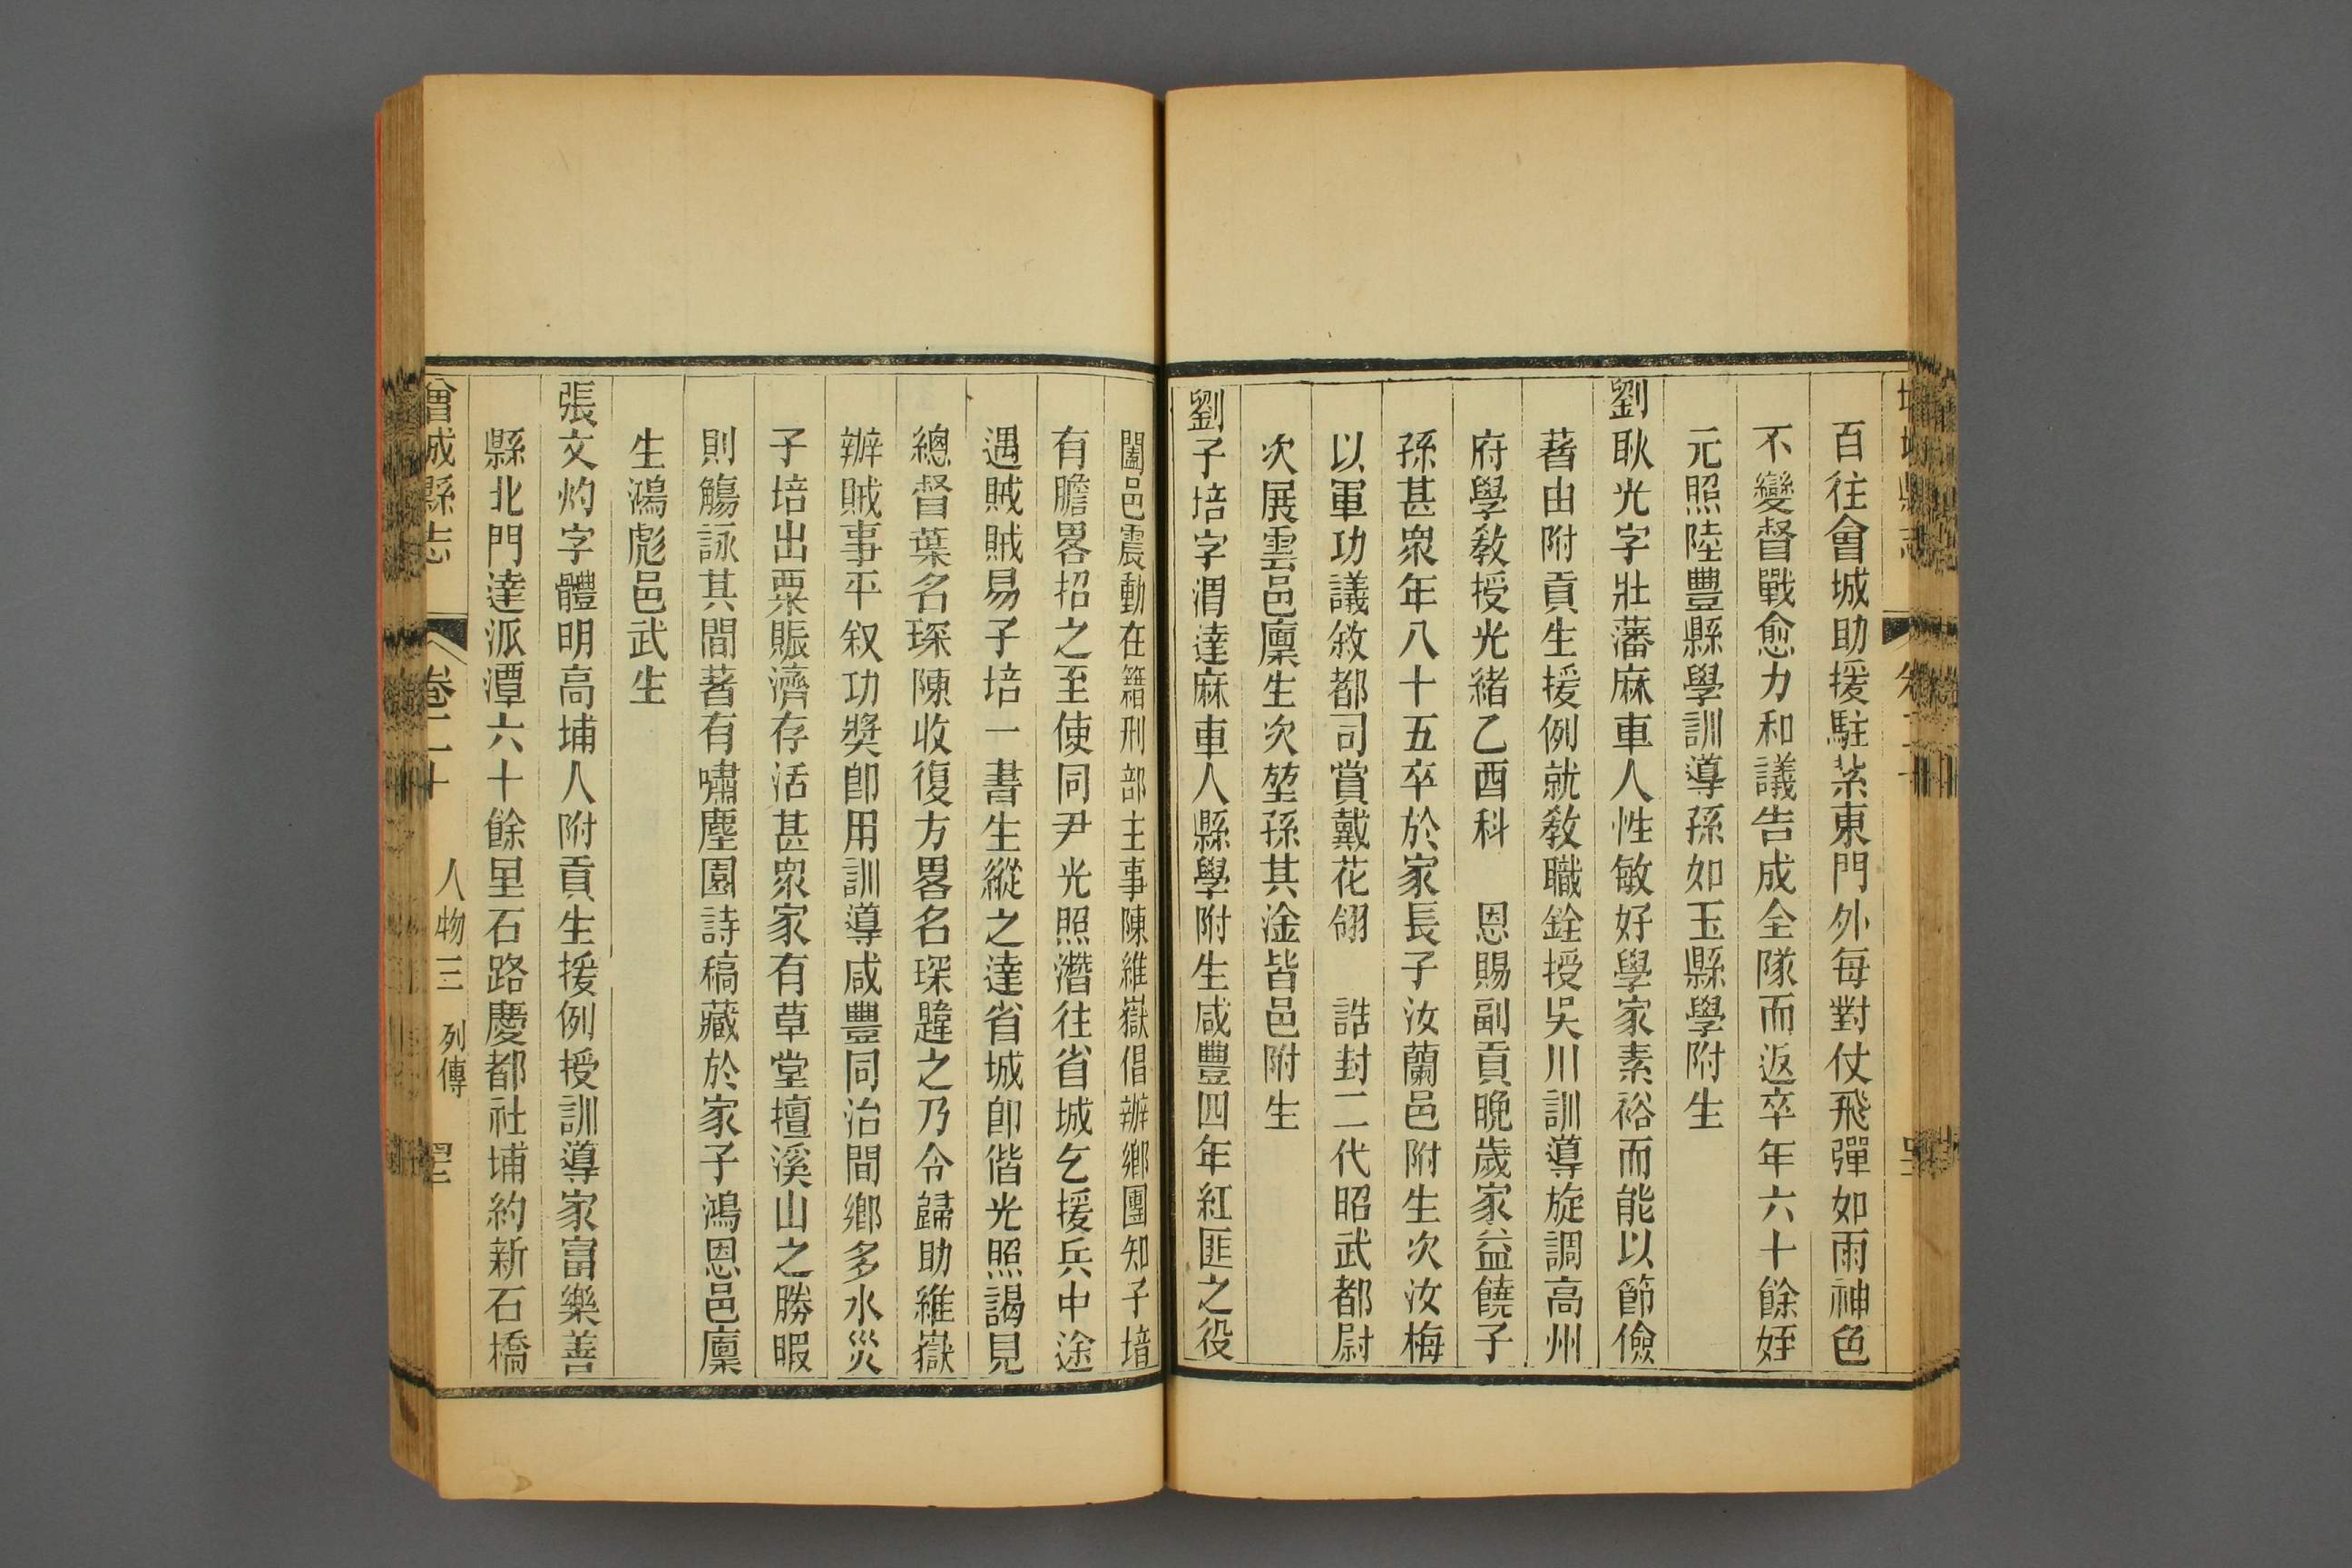 百往會城助援駐紮東門外每對仗飛彈如雨神色
不變督戰愈力和議告成全隊而返卒年六十餘姪
元照陸豐縣學訓導孫如玉縣學附生
劉耿光字壯藩麻車人性敏好學家素裕而能以節儉
著由附貢生援例就教職銓授吳川訓導旋調高州
府學教授光緒乙酉科 恩賜副貢晚歲家益饒子
孫甚眾年八十五卒於家長子汝蘭邑附生次汝梅
以軍功議敘都司賞戴花翎 誥封二代昭武都尉
次展雲邑廩生次堃孫其淦皆邑附生
劉子培字渭達麻車人縣學附生咸豐四年紅匪之役
闔邑震動在籍刑部主事陳維嶽倡辦鄉團知子培
有膽畧招之至使同尹光照潛往省城乞援兵中途
遇賊賊易子培一書生縱之達省城卽偕光照謁見
總督葉名琛陳收復方畧名琛韙之乃令歸助維嶽
辦賊事平叙功獎卽用訓導咸豐同治間鄉多水災
子培出粟賑濟存活甚眾家有草堂擅溪山之勝暇
則觴詠其間著有嘯塵園詩稿藏於家子鴻恩邑廩
生鴻彪邑武生
張文灼字體明高埔人附貢生援例授訓導家富樂善
縣北門達派潭六十餘里石路慶都社埔約新石橋
曾城縣志 卷二十 人物三 列傳